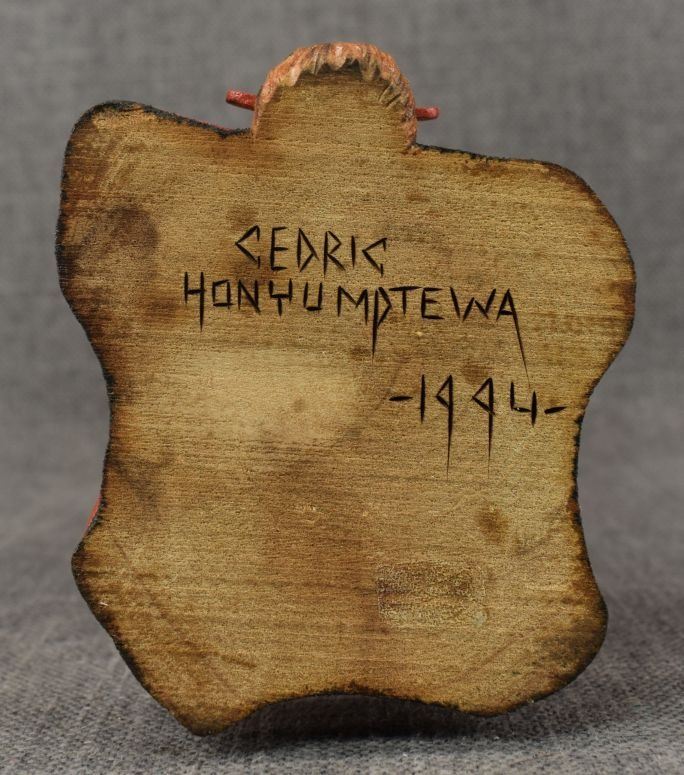 CEDRIC
HONYUMPTEWA
-1994-